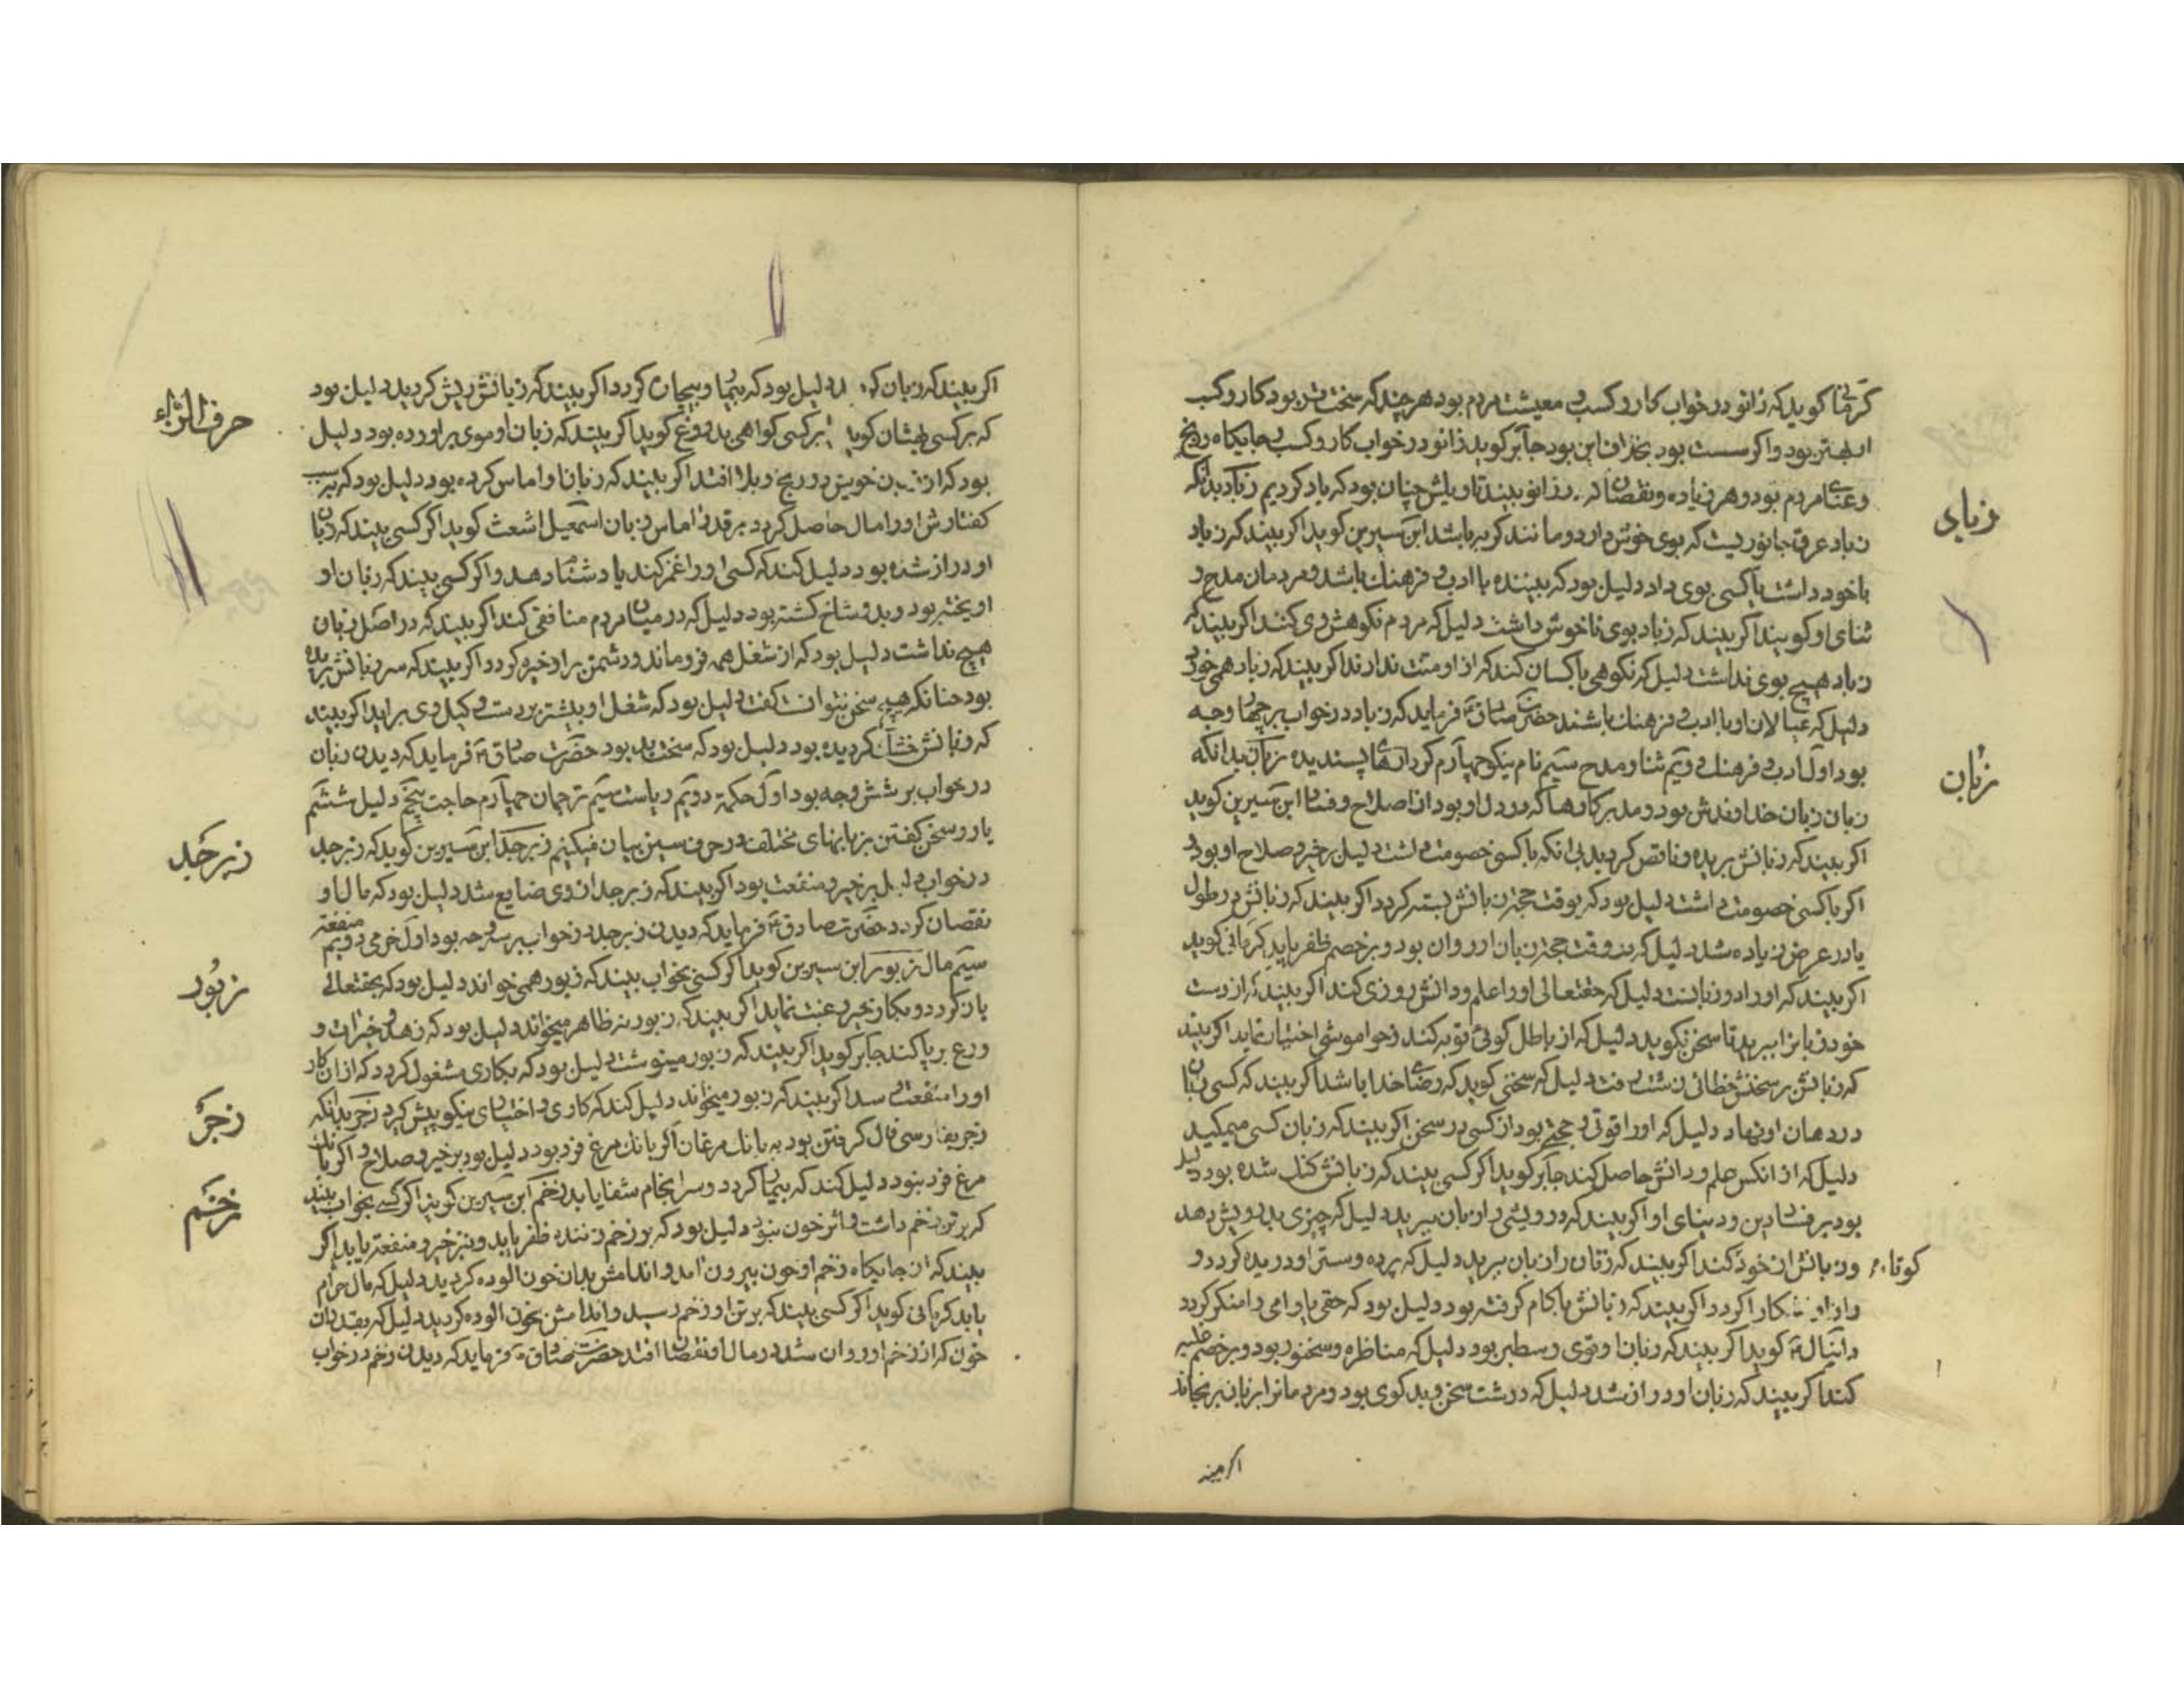 کرمانی کوید که زانو در خواب کار و کسب و معیشت مردم بود هر چند که سخت تر بود کار و کسب
او بهتر بود و اکر سست بود بخلاف این بود جابر کوید زانو در خواب کار و کسب و جایکاه رنج
و عنای مردم بود و هر زیاده و نقصان که در زانو بیند تاویلش چنان بود که یاد کردیم زباد بدانکه
زبادی
زباد عرق جانوریست که بوی خوش دارد و مانند کربه باشد ابن سیرین کوید اکر بیند که زباد
با خود داشت یا کسی بوی داد دلیل بود که بیننده با ادب و فرهنك باشد و مردمان مدح و
ثنای او کویند اکر بیند که زباد بوی ناخوش داشت دلیل که مردم نکوهش وی کنند اکر بیند که
زباد هیچ بوی نداشت دلیل که نکوهی با کسان کند که از او منت ندارند اکر بیند که زباد همی خورد
دلیل که عیالان او با ادب و فرهنك باشند حضرت صادق فرماید که زباد در خواب بر چهار وجه
بود اول ادب و فرهنك دویم ثنا و مدح سیم نام نیکو چهارم کردارهای پسندیده زبان بدانکه
زبان
زبان زبان خداوندش بود و مدبر کارها که در دل او بود از اصلاح و فساد ابن سیرین کوید
اکر بیند که زبانش بریده و ناقص کردید بی انکه با کسی خصومت داشت دلیل بر خیر و صلاح او بود و
اکر با کسی خصومت داشت دلیل بود که بوقت حجت زبانش بسته کردد اکر بیند که زبانش در طول
یا در عرض زیاده شد دلیل که بوقت حجت زبان او روان بود و بر خصم ظفر یابد کرمانی کوید
اکر بیند که او را دو زبانست دلیل که حقتعالی او را علم و دانش روزی کند اکر بیند که از دست
خود زبانرا ببرید تا سخن نکوید دلیل که از باطل کوئی توبه کند و خواموشی اختیار نماید اکر بیند
که زبانش بر سخنش خطائی نشت رفت دلیل که سخنی کوید که رضای خدا باشد اکر بیند که کسی زبان
در دهان او نهاد دلیل که او را قوتی و حجتی بود از کسی در سخن اکر بیند که زبان کسی میمکید
دلیل که از انکس علم و دانش حاصل کند جابر کوید اکر کسی بیند که زبانش کنك شده بود دلیل
بود بر فساد دین و دنیای او اکر بیند که درویشی را زبان ببرید دلیل که چیزی بدرویش دهد
و زبانش از خود کوتاه کند اکر بیند که زنان را زبان ببرید دلیل که پرده و ستر او دریده کردد و
راز او اشکارا کردد اکر بیند که زبانش با کام کرفته بود دلیل بود که حقی یا وامی را منکر کردد
دانیال کوید اکر بیند که زبان او قوی و سطبر بود دلیل که مناظره و سخنور بود و بر خصم غلبه
کند اکر بیند که زبان او دراز شد دلیل که درشت سخن و بد کوی بود و مردمانرا بزبان برنجاند
اکر بیند
اکر بیند که زبان دلیل بود که بیمار و بیجان کردد اکر بیند که زبانش ریش کردید دلیل بود
حرف الزاء
که بر کسی بهتان کوید یا بر کسی کواهی بدروغ کوید اکر بیند که زبان او موی براورده بود دلیل
بود که از خویش در رنج و بلا افتد اکر بیند که زبان او اماس کرده بود دلیل بود که بسبب
کفتارش او را مال حاصل کردد بر قدر اماس زبان اسمعیل اشعث کوید اکر کسی بیند که زبان
او دراز شده بود دلیل کند که کسی او را غمز کند یا دشنام دهد و اکر کسی بیند که زبان او
اویخته بود و بدو شاخ کشته بود دلیل که در میان مردم منافقی کند اکر بیند که در اصل زبان
هیچ نداشت دلیل بود که از شغل همه فرو ماند و دشمن بر او خیره کردد اکر بیند که سر زبانش بریده
بود چنانکه هیچ سخن نتوانست کفت دلیل بود که شغل او بیشتر بر دست وکیل وی براید اکر بیند
که زبانش خشك کردیده بود دلیل بود که سخت بد بود حضرت صادق فرماید که دیدن زبان
در خواب بر شش وجه بود اول حکمة دویم ریاست سیم ترجمان چهارم حاجت پنجم دلیل ششم
یار و سخن کفتن بزبانهای مختلف در حرف سین بیان میکنیم زبرجد ابن سیرین کوید که زبرجد
زبرجد
در خواب دلیل بر خیر و منفعت بود اکر بیند که زبرجد از وی ضایع شد دلیل بود که مال او
نقصان کردد حضرت صادق فرماید که دیدن زبرجد در خواب بر سه وجه بود اول خرمی دویم منفعة
سیم مال زبور ابن سیرین کوید اکر کسی بخواب بیند که زبور همی خواند دلیل بود که بحقتعالی
زبور
باز کردد و بکار خیر رغبت نماید اکر بیند که زبور به ظاهر میخواند دلیل بود که زهد و خیرات و
ورع بر پا کند جابر کوید اکر بیند که زبور مینوشت دلیل بود که بکاری مشغول کردد که از ان کار
او را منفعت رسد اکر بیند که زبور میخواند دلیل کند که کاری و اختیاری نیکو پیش کیرد زجر بدانکه
زجر
زجر بفارسی فال کرفتن بود به بانك مرغان اکر بانك مرغ فرد بود دلیل بود بر خیر و صلاح و اکر بانك
مرغ فرد نبود دلیل کند که بیمار کردد و سرانجام شفا یابد زخم ابن سیرین کوید اکر کسی بخواب بیند
زخم
که بر تن زخم داشت و اثر خون نبود دلیل بود که بر زخم زننده ظفر یابد و نیز خیر و منفعت یابد اکر
بیند که از جایکاه زخم او خون بیرون امد و اندامش بدان خون الوده کردید دلیل که مال حرام
یابد کرمانی کوید اکر کسی بیند که بر تن او زخم رسید و اندامش بخون الوده کردید دلیل که بقدر ان
خون که از زخم او روان شد در مال او نقصان افتد حضرت صادق فرماید که دیدن زخم در خواب